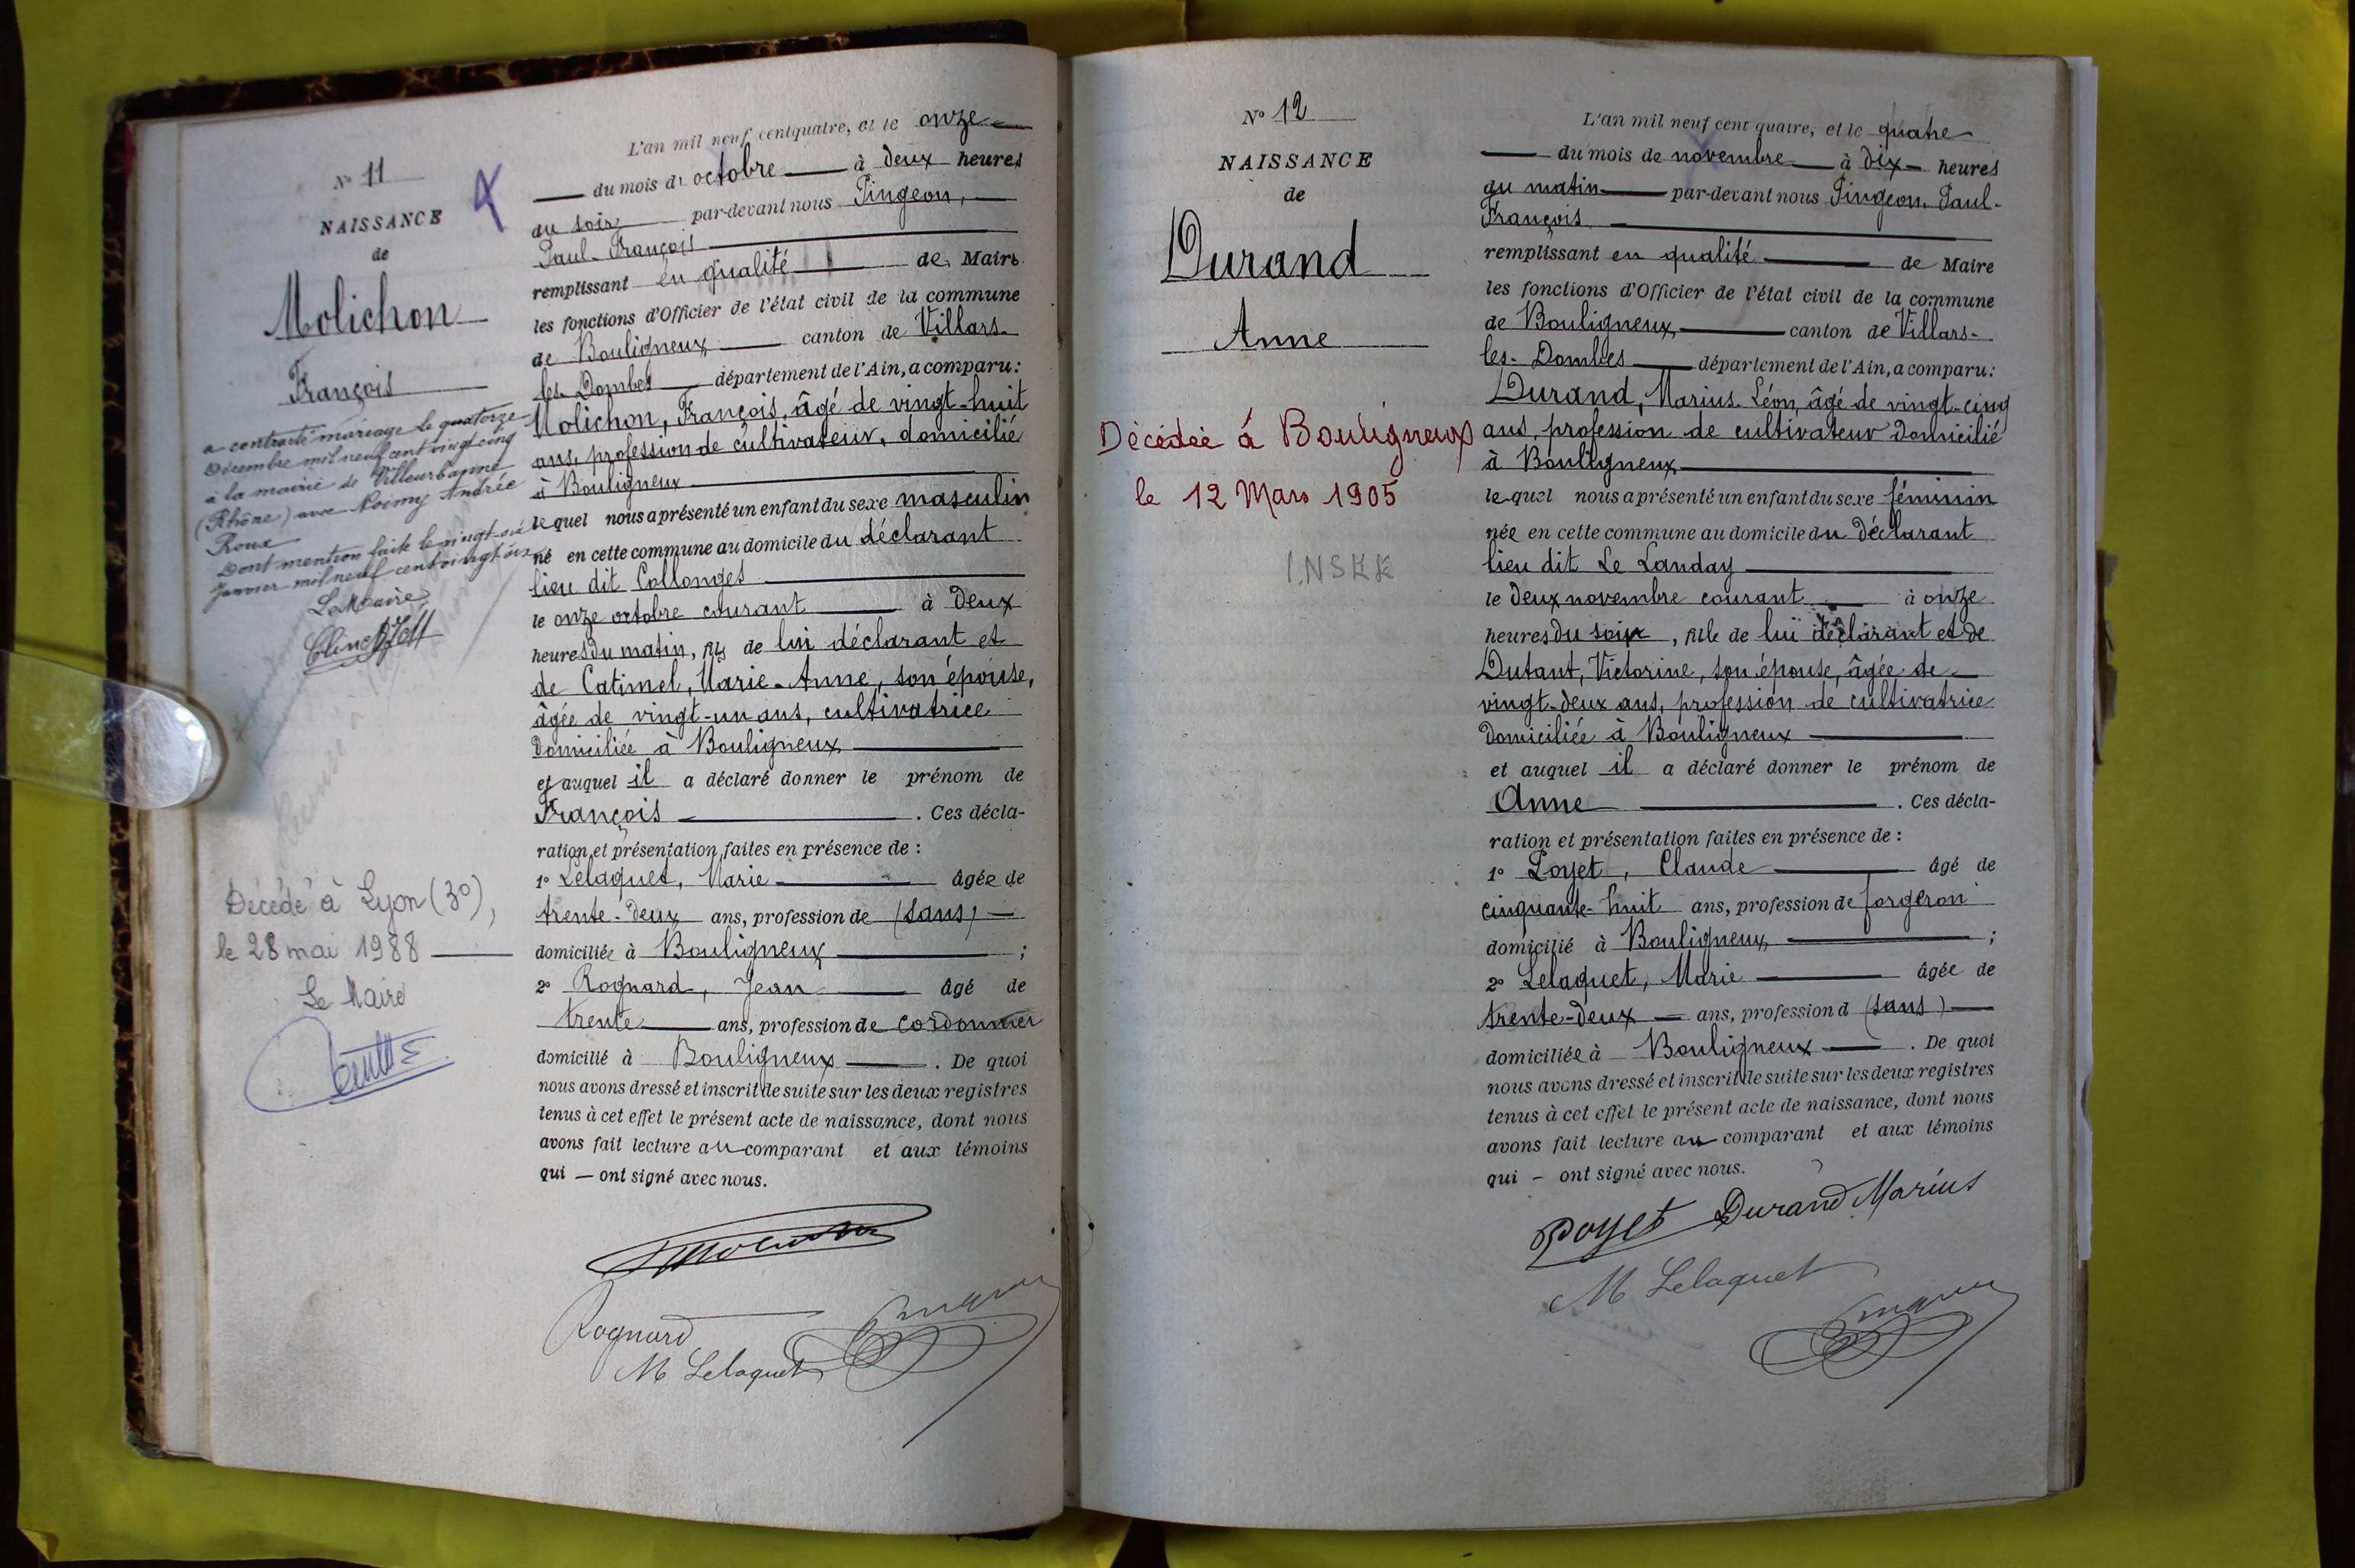 N° 11
NAISSANCE
de
Molichon
François
a contracté mariage le quatorze
Décembre mil neuf cent vingt cinq
à la mairie de Villeurbanne
(Rhône) avec Noémy Andrée
Roux
Dont mention faite le vingt six
Janvier mil neuf cent vingt six
Le Maire,
Décédé à Lyon (3°),
le 28 mai 1988
Le Maire
L'an mil neuf cent quatre, et le onze
du mois d'octobre à deux heures
du soir par-devant nous Pingeon,
Paul-François
remplissant en qualité de Maire
les fonctions d'Officier de l'état civil de la commune
de Bouligneux canton de Villars-
les-Dombes département de l'Ain, a comparu :
Molichon, François, âgé de vingt-huit
ans, profession de cultivateur, domicilié
à Bouligneux
lequel nous a présenté un enfant du sexe masculin
né en cette commune au domicile du déclarant
lieu dit Collonges
le onze octobre courant à deux
heures du matin, fils de lui déclarant et
de Catimel, Marie-Anne, son épouse,
âgée de vingt-un ans, cultivatrice
domiciliée à Bouligneux
et auquel il a déclaré donner le prénom de
François . Ces décla-
ration et présentation faites en présence de :
1° Lelaquet, Marie âgée de
trente-deux ans, profession de (sans)
domiciliée à Bouligneux ;
2° Rognard, Jean âgé de
trente ans, profession de cordonnier
domicilié à Bouligneux . De quoi
nous avons dressé et inscrit de suite sur les deux registres
tenus à cet effet le présent acte de naissance, dont nous
avons fait lecture au comparant et aux témoins
qui — ont signé avec nous.
Molichon
Rognard
M Lelaquet
Pingeon
N° 12
NAISSANCE
de
Durand
Anne
Décédée à Bouligneux
le 12 Mars 1905
I.NSEE
L'an mil neuf cent quatre, et le quatre
du mois de novembre à dix heures
du matin par-devant nous Pingeon, Paul-
François
remplissant en qualité de Maire
les fonctions d'Officier de l'état civil de la commune
de Bouligneux canton de Villars-
les-Dombes département de l'Ain, a comparu :
Durand, Marius-Léon, âgé de vingt-cinq
ans, profession de cultivateur domicilié
à Bouligneux
lequel nous a présenté un enfant du sexe féminin
née en cette commune au domicile du déclarant
lieu dit Le Landay
le deux novembre courant à onze
heures du soir, fille de lui déclarant et de
Dutant, Victorine, son épouse, âgée de
vingt-deux ans, profession de cultivatrice
domiciliée à Bouligneux
et auquel il a déclaré donner le prénom de
Anne . Ces décla-
ration et présentation faites en présence de :
1° Poyet, Claude âgé de
cinquante-huit ans, profession de forgeron
domicilié à Bouligneux ;
2° Lelaquet, Marie âgée de
trente-deux ans, profession d (sans)
domiciliée à Bouligneux . De quoi
nous avons dressé et inscrit de suite sur les deux registres
tenus à cet effet le présent acte de naissance, dont nous
avons fait lecture au comparant et aux témoins
qui — ont signé avec nous.
Poyet Durand Marius
M Lelaquet
Pingeon